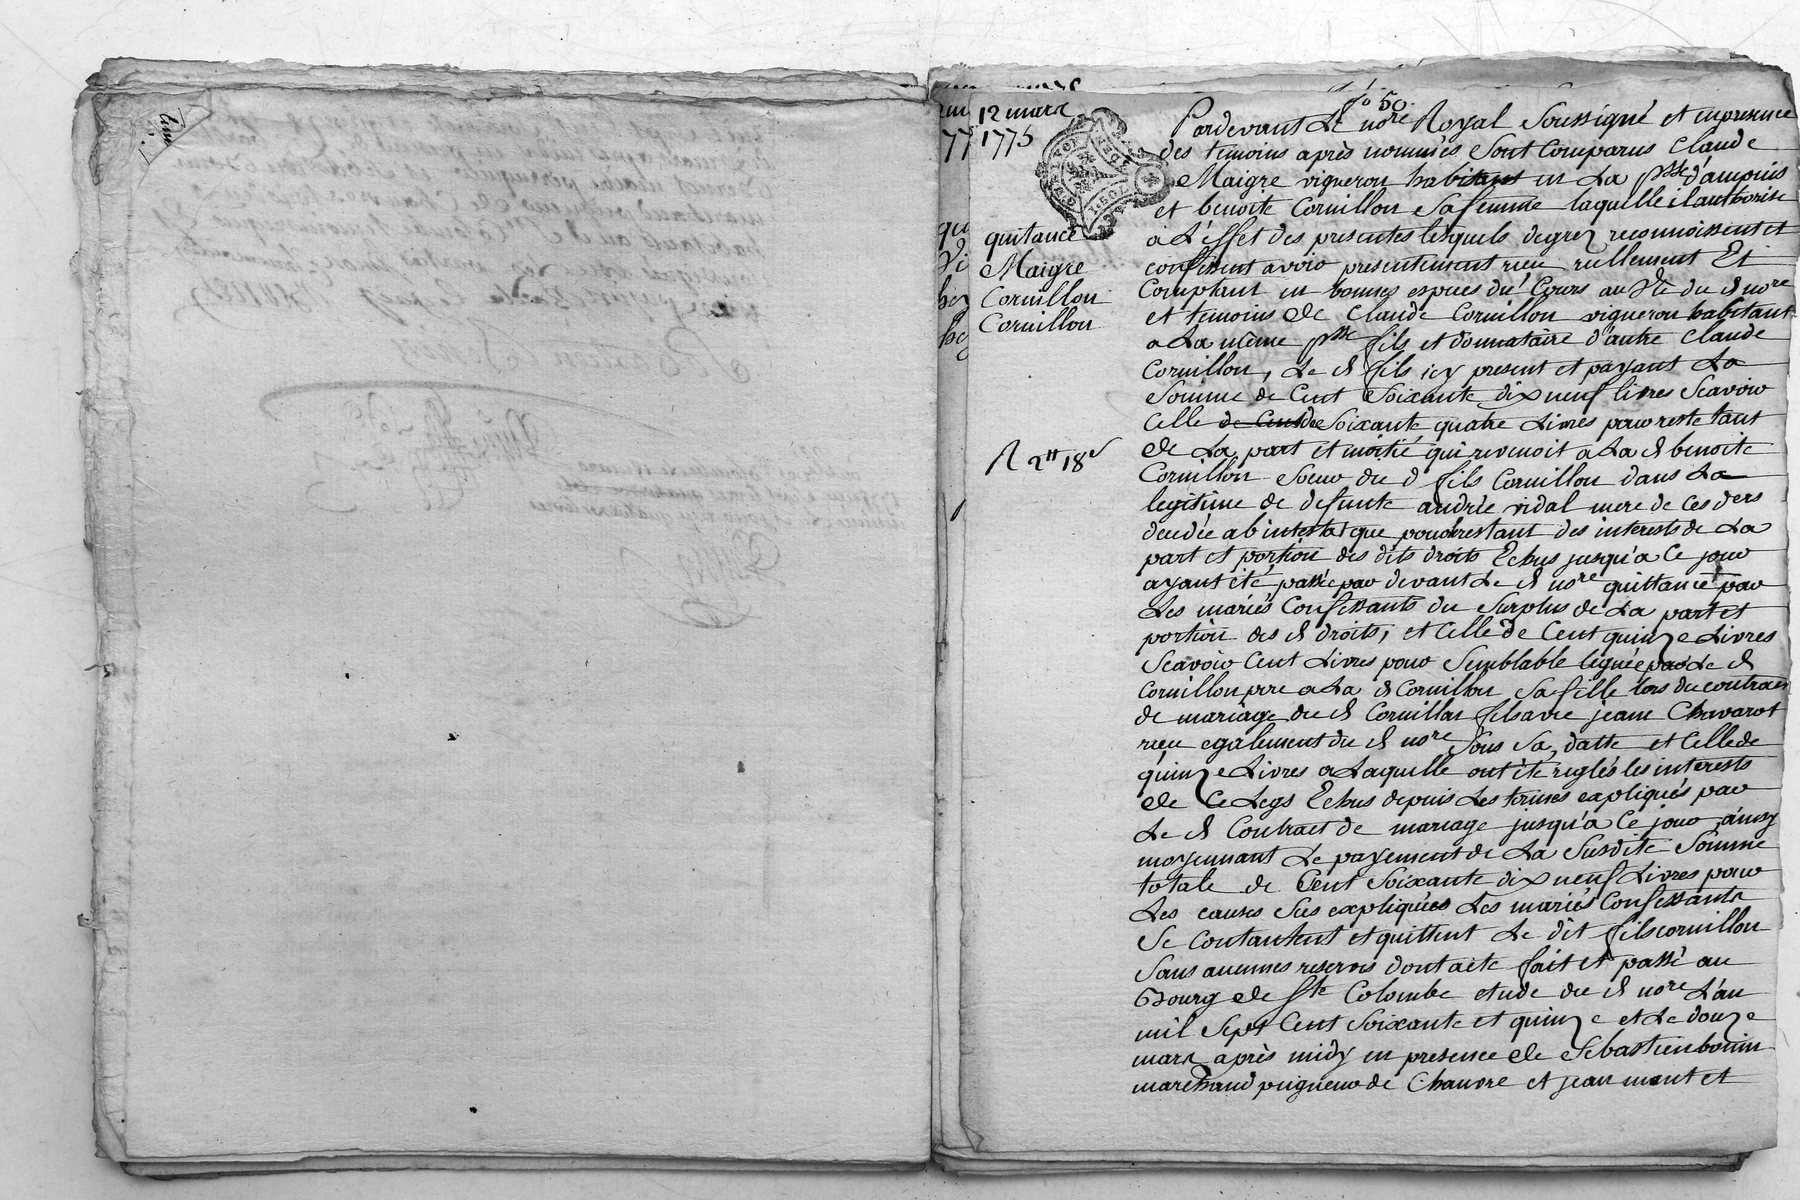 fo 50.
12 mars
1775
quitance
Maigre
Cornillon
Cornillon
R 2tt 18s
Pardevant Le nore Royal Soussigné et en presence
des temoins après nommés Sont Comparus Claude
Maigre vigneron habitant en La psse d'ampuis
et benoite Cornillon Sa femme laquelle il authorise
a L'effet des presentes lesquels de grez reconnoissent et
confessent avoir presentement reçu reellement Et
Comptant en bonnes especes du Cours au Vu du d nore
et temoins de Claude Cornillon vigneron habitant
a La même psse fils et donnataire d'autre Claude
Cornillon, Le d fils icy present et payant La
Somme de Cent Soixante dix neuf livres Scavoir
Celle de Cent de Soixante quatre Livres pour reste tant
de La part et moitié qui revenoit a La d benoite
Cornillon Soeur du d fils Cornillon dans La
legitime de defunte andrée vidal mere de Ces ders
decedée ab intestat que pour restant des interests de La
part et portion des dits droits Echus jusqu'a Ce jour
ayant été passée par devant Le d nore quittance par
Les mariés Confessants du Surplus de La part et
portion des d droits, et Celle de Cent quinze Livres
Scavoir Cent Livres pour Semblable leguée par Le d
Cornillon pere a La d Cornillon Sa fille lors du contract
de mariage du d Cornillon fils avec jeane Chavarot
reçu egalement du d nore Sous Sa datte et Celle de
quinze Livres a Laquelle ont été reglés les interests
de Ce Legs Echus depuis Les termes expliqués par
Le d Contract de mariage jusqu'a Ce jour, ainsy
moyennant Le payement de La Susdite Somme
totale de Cent Soixante dix neuf Livres pour
Les causes Sus expliquées Les mariés Confessants
Se contantent et quittent Le dit fils cornillon
Sans aucunes reserves dont acte fait et passé au
Bourg de Ste Colombe etude du d nore L'an
mil Sept Cent Soixante et quinze et Le douze
mars après midy en presence de Sebastien bonin
marchand peigneur de Chanvre et jean mont et